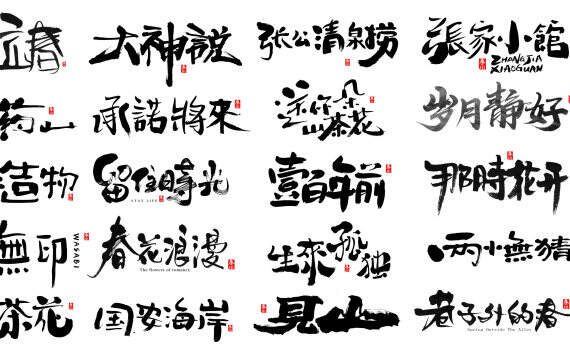 立春
大神說
张公清泉捞
張家小館
ZHANGJIA
XIAOGUAN
药山
承諾將來
送你一朵
山茶花
岁月静好
造物
留住時光
STAY LIFE
壹百年前
那時花开
無印
WASABI
春花浪漫
The flowers of romance
生來孤独
两小無猜
茶花
国安海岸
見山
巷子外的春
Spring Outside The Alley